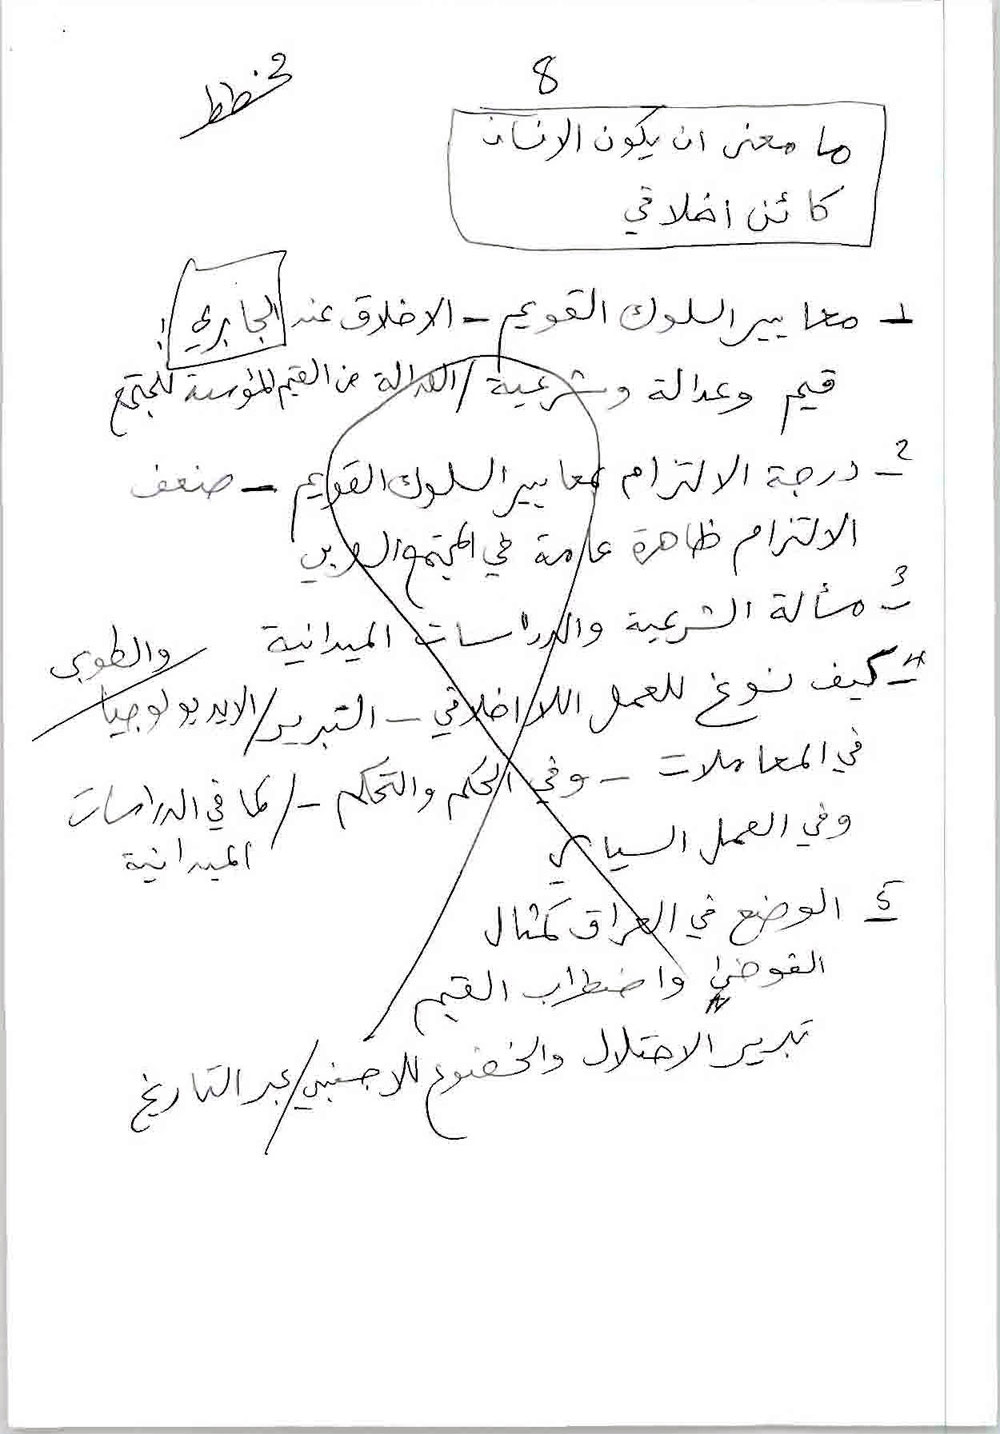 8
مخطط
ما معنى ان يكون الانسان
كائن اخلاقي
1- معايير السلوك القويم - الاخلاق عند الجابري:
قيم وعدالة وشرعية / العدالة من القيم المؤسسة للمجتمع
2- درجة الالتزام بمعايير السلوك القويم - ضعف
الالتزام ظاهرة عامة في المجتمع العربي
3- مسألة الشرعية والدراسات الميدانية
4- كيف نسوغ للعمل اللا اخلاقي - التبرير / الايديولوجيا والطوبى
في المعاملات - وفي الحكم والتحكم - / كما في الدراسات
الميدانية
وفي العمل السياسي
5- الوضع في العراق كمثال
الفوضى واضطراب القيم
تبرير الاحتلال والخضوع للاجنبي / عبر التاريخ